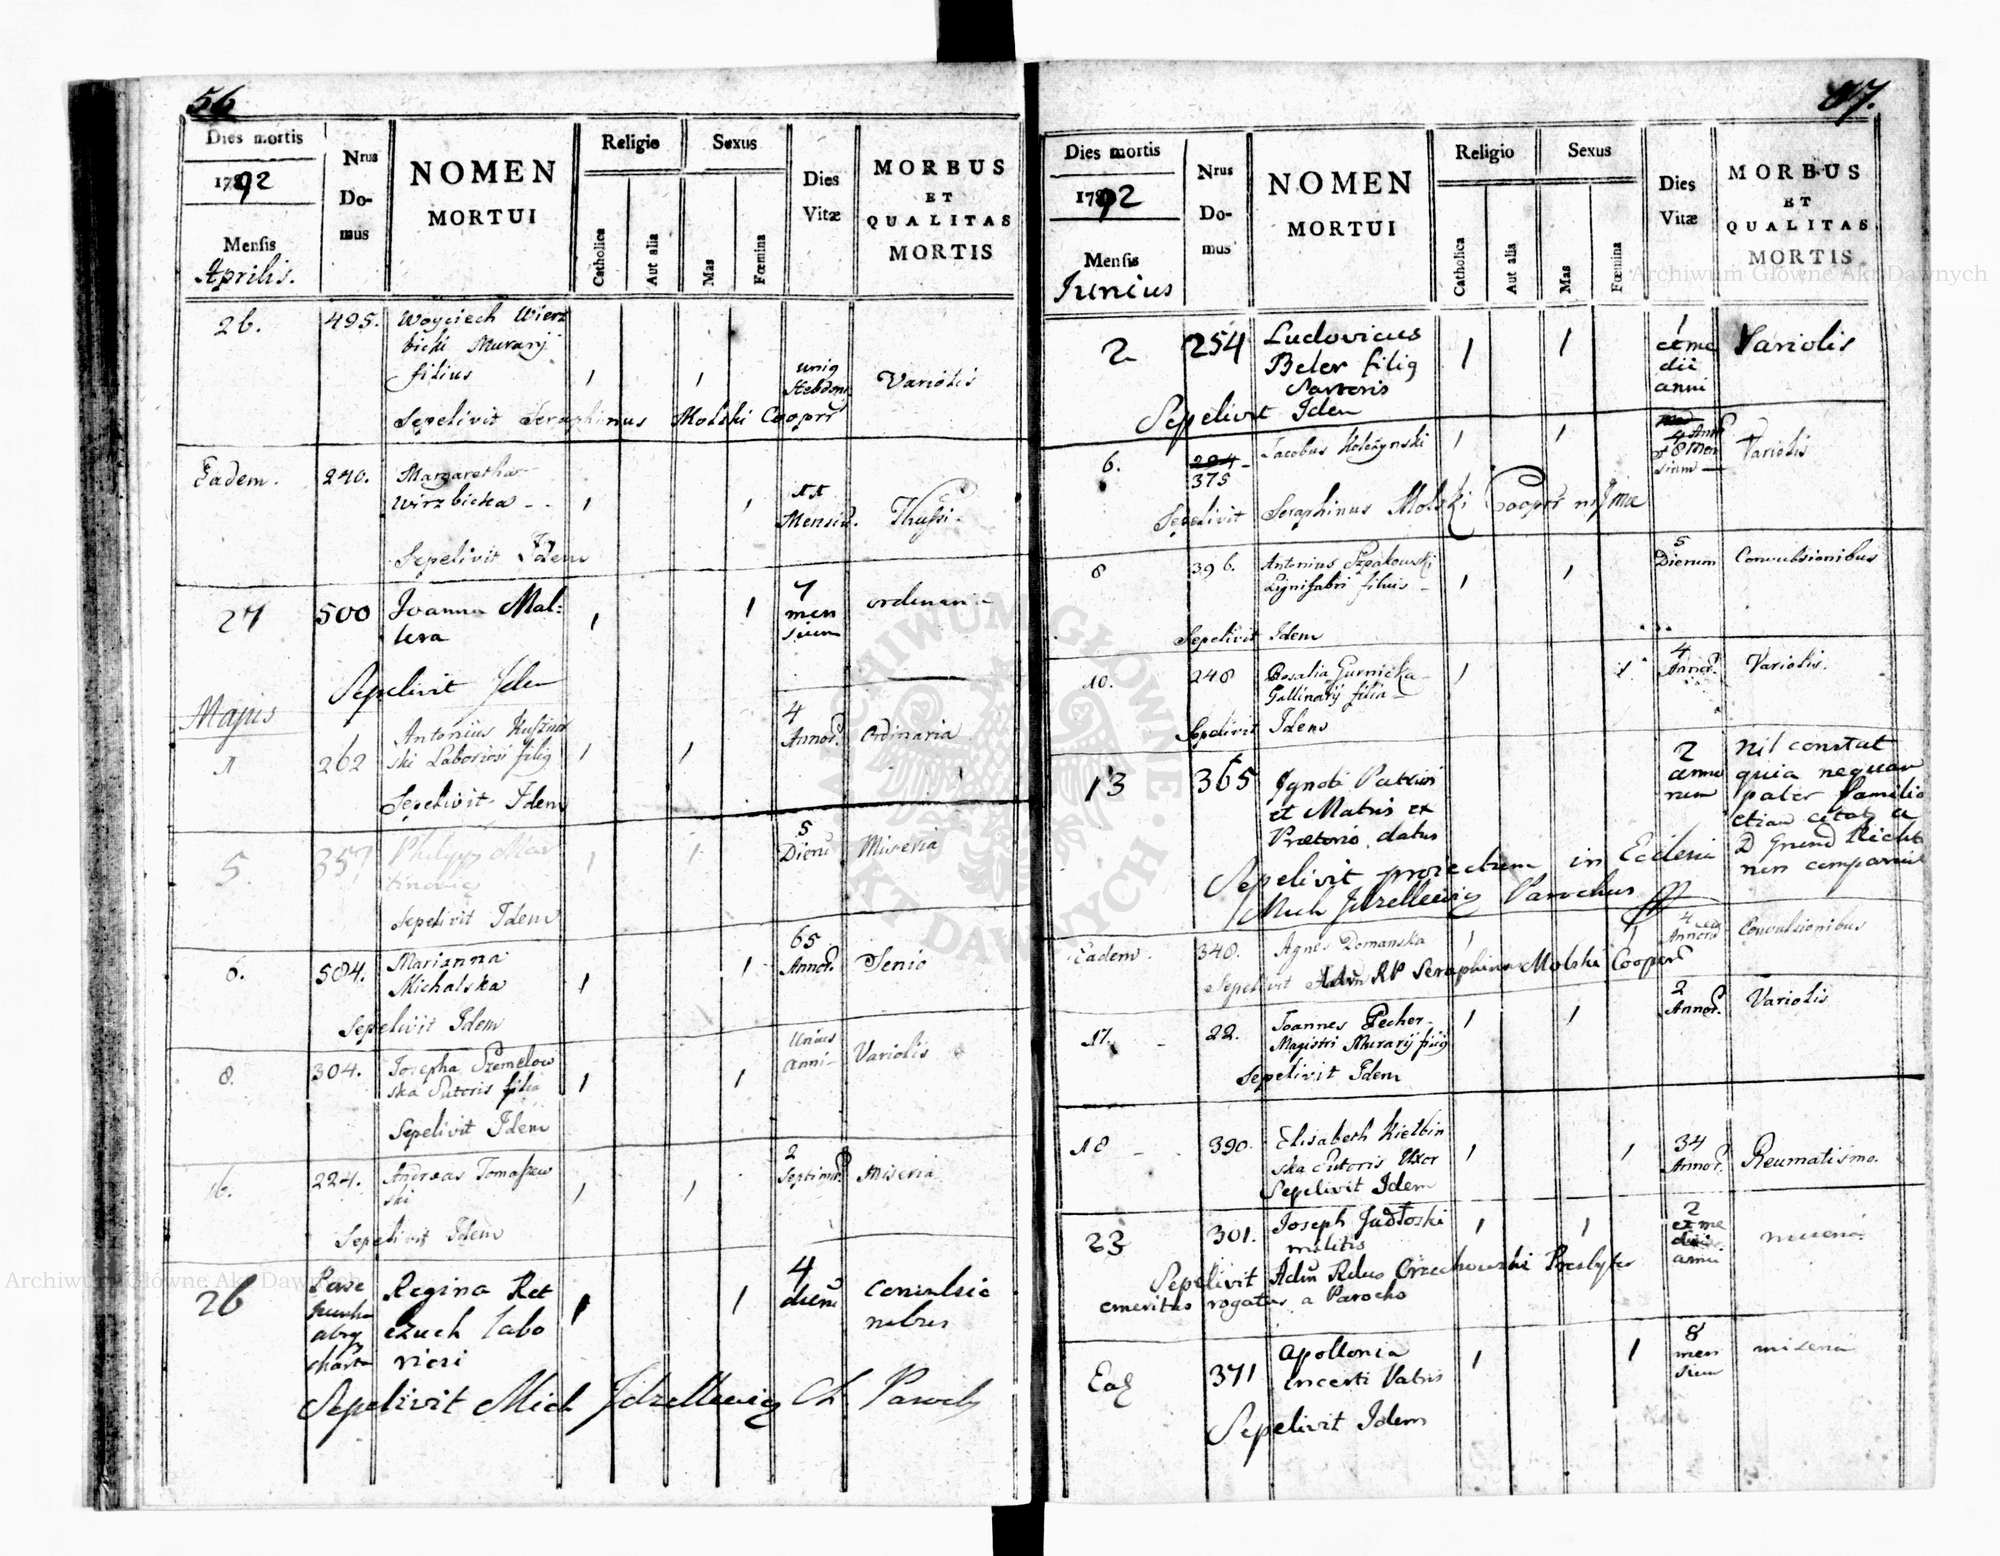 56
Dies mortis
1792
Mensis
Aprilis.
Nrus
Do-
mus
NOMEN
MORTUI
Religio
Catholica
Aut alia
Sexus
Mas
Fœmina
Dies
Vitæ
MORBUS
ET
QUALITAS
MORTIS
26. 495. Woyciech Wierz
bicki Murarj
filius 1 1 Variolis
Sepelivit Seraphinus Molski Coopr
Eadem. 240. Margaretha
Wirzbicka - - 1 1 Mensiū. Thussi.
Sepelivit Idem
27 500 Joanna Mal: 1 1 7 ordinaria
lera men
sium
Sepelivit Idem
Majus
1 262 Antonius
ski Laboriosi filig 1 1 4 Annor. Ordinaria
Sepelivit Idem
5. 357 Philipp Mar
tinowicz 1 1 5 Dierū Miseria
Sepelivit Idem
6. 584. Marianna
Michalska 1 1 65 Annor. Senio
Sepelivit Idem
8. 304. Josepha Szemelow
ska Sutoris filia 1 1 Unius Anni- Variolis
Sepelivit Idem
16. 224. Andreas Tomaszew
ski 1 1 2 Septimar. Miseria
Sepelivit Idem
26 Regina Ret
czuch labo
riosi 1 1 4 dierū convulsio
nibus
Sepelivit Mich Jdzellewicz Paroch
Dies mortis
1792
Mensis
Junius
Nrus
Do-
mus
NOMEN
MORTUI
Religio
Catholica
Aut alia
Sexus
Mas
Fœmina
Dies
Vitæ
MORBUS
ET
QUALITAS
MORTIS
2 254 Ludovicus
Beler filig
Sartoris 1 1 1
et me
dii
anni Variolis
Sepelivit Idem
6. 375 Jacobus Kolczynski 1 1 4 Annor
et 8 Men
sium Variolis
Sepelivit Seraphinus Molski Coopr
8 396. Antonius Szpakowski
Lignifabri filius 1 1 5 Dierum Convulsionibus
Sepelivit Idem
10. 248 Rosalia Gurnicka
Gallinarij filia 1 1 4 Annor. Variolis.
Sepelivit Idem
13 365 Ignoti Patris
et Matris ex
Prætorio datus 2
anno
rum nil constat
quia nequam
pater familia
etiam citatq a
D Grund Richt
non comparuit
Sepelivit proiectum in Eclesia
Mich Jdzellewicz Parochus
Eadem. 348. Agnes Domanska 1 1 4 Annor. Convulsionibus
Sepelivit RP Seraphinus Molski Coopr
17. 22. Joannes Pecher
Magistri Murarij filig 1 1 2 Annor. Variolis
Sepelivit Idem
18 390. Elisabeth Kielbin
ska Sutoris Uxor 1 1 34 Annor. Reumatismo.
Sepelivit Idem
23 301. Joseph Judłoski
militis 1 1 2
et me
dii
anni miseria
Sepelivit Adm Rdus Orzechowski Presbyter
emeritus rogatus a Parocho
Ead 371 Apollonia
incerti Patris 1 1 8
men
sium miseria
Sepelivit Idem
Archiwum Główne Akt Dawnych
Archiwum Główne Akt Dawnych
ARCHIWUM GŁÓWNE · AKT DAWNYCH ·